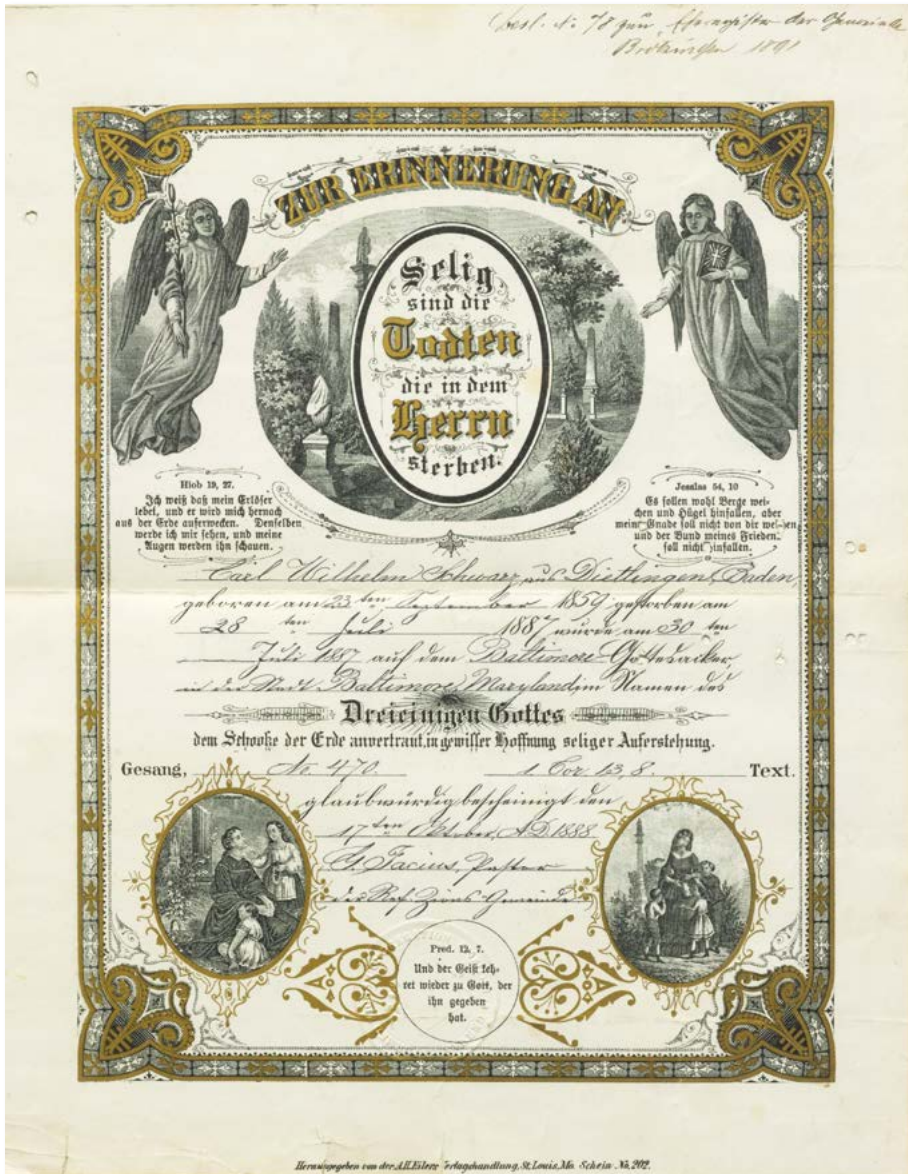 Beil. No 78 zum Eheregister der Gemeinde
1891
ZUR ERINNERUNG AN
Selig
sind die
Todten
die in dem
Herrn
sterben.
Hiob 19, 27.
Ich weiß daß mein Erlöser
lebet, und er wird mich hernach
aus der Erde auferwecken. Denselben
werde ich mir sehen, und meine
Augen werden ihn schauen.
Jesaias 54, 10
Es sollen wohl Berge wei-
chen und Hügel hinfallen, aber
meine Gnade soll nicht von dir weichen
und der Bund meines Frieden
soll nicht hinfallen.
Carl Wilhelm Schwarz, aus Dietlingen, Baden,
geboren am 23 ten September 1859 gestorben am
28 ten Juli 1887 wurde am 30 ten
Juli 1887 auf dem Baltimore Gottesacker,
in der Stadt Baltimore, Maryland im Namen des
Dreieinigen Gottes
dem Schooße der Erde anvertraut, in gewisser Hoffnung seliger Auferstehung.
Gesang, No. 470. 1 Cor. 13, 8. Text.
glaubwürdig bescheinigt den
17 ten October, A.D. 1888
Facius, Pastor
der Ref. Zions-Gemeinde
Pred. 12, 7.
Und der Geist keh-
ret wieder zu Gott, der
ihn gegeben
hat.
Herausgegeben von der A.H. Eilers Verlagshandlung, St. Louis, Mo. Schein No. 202.